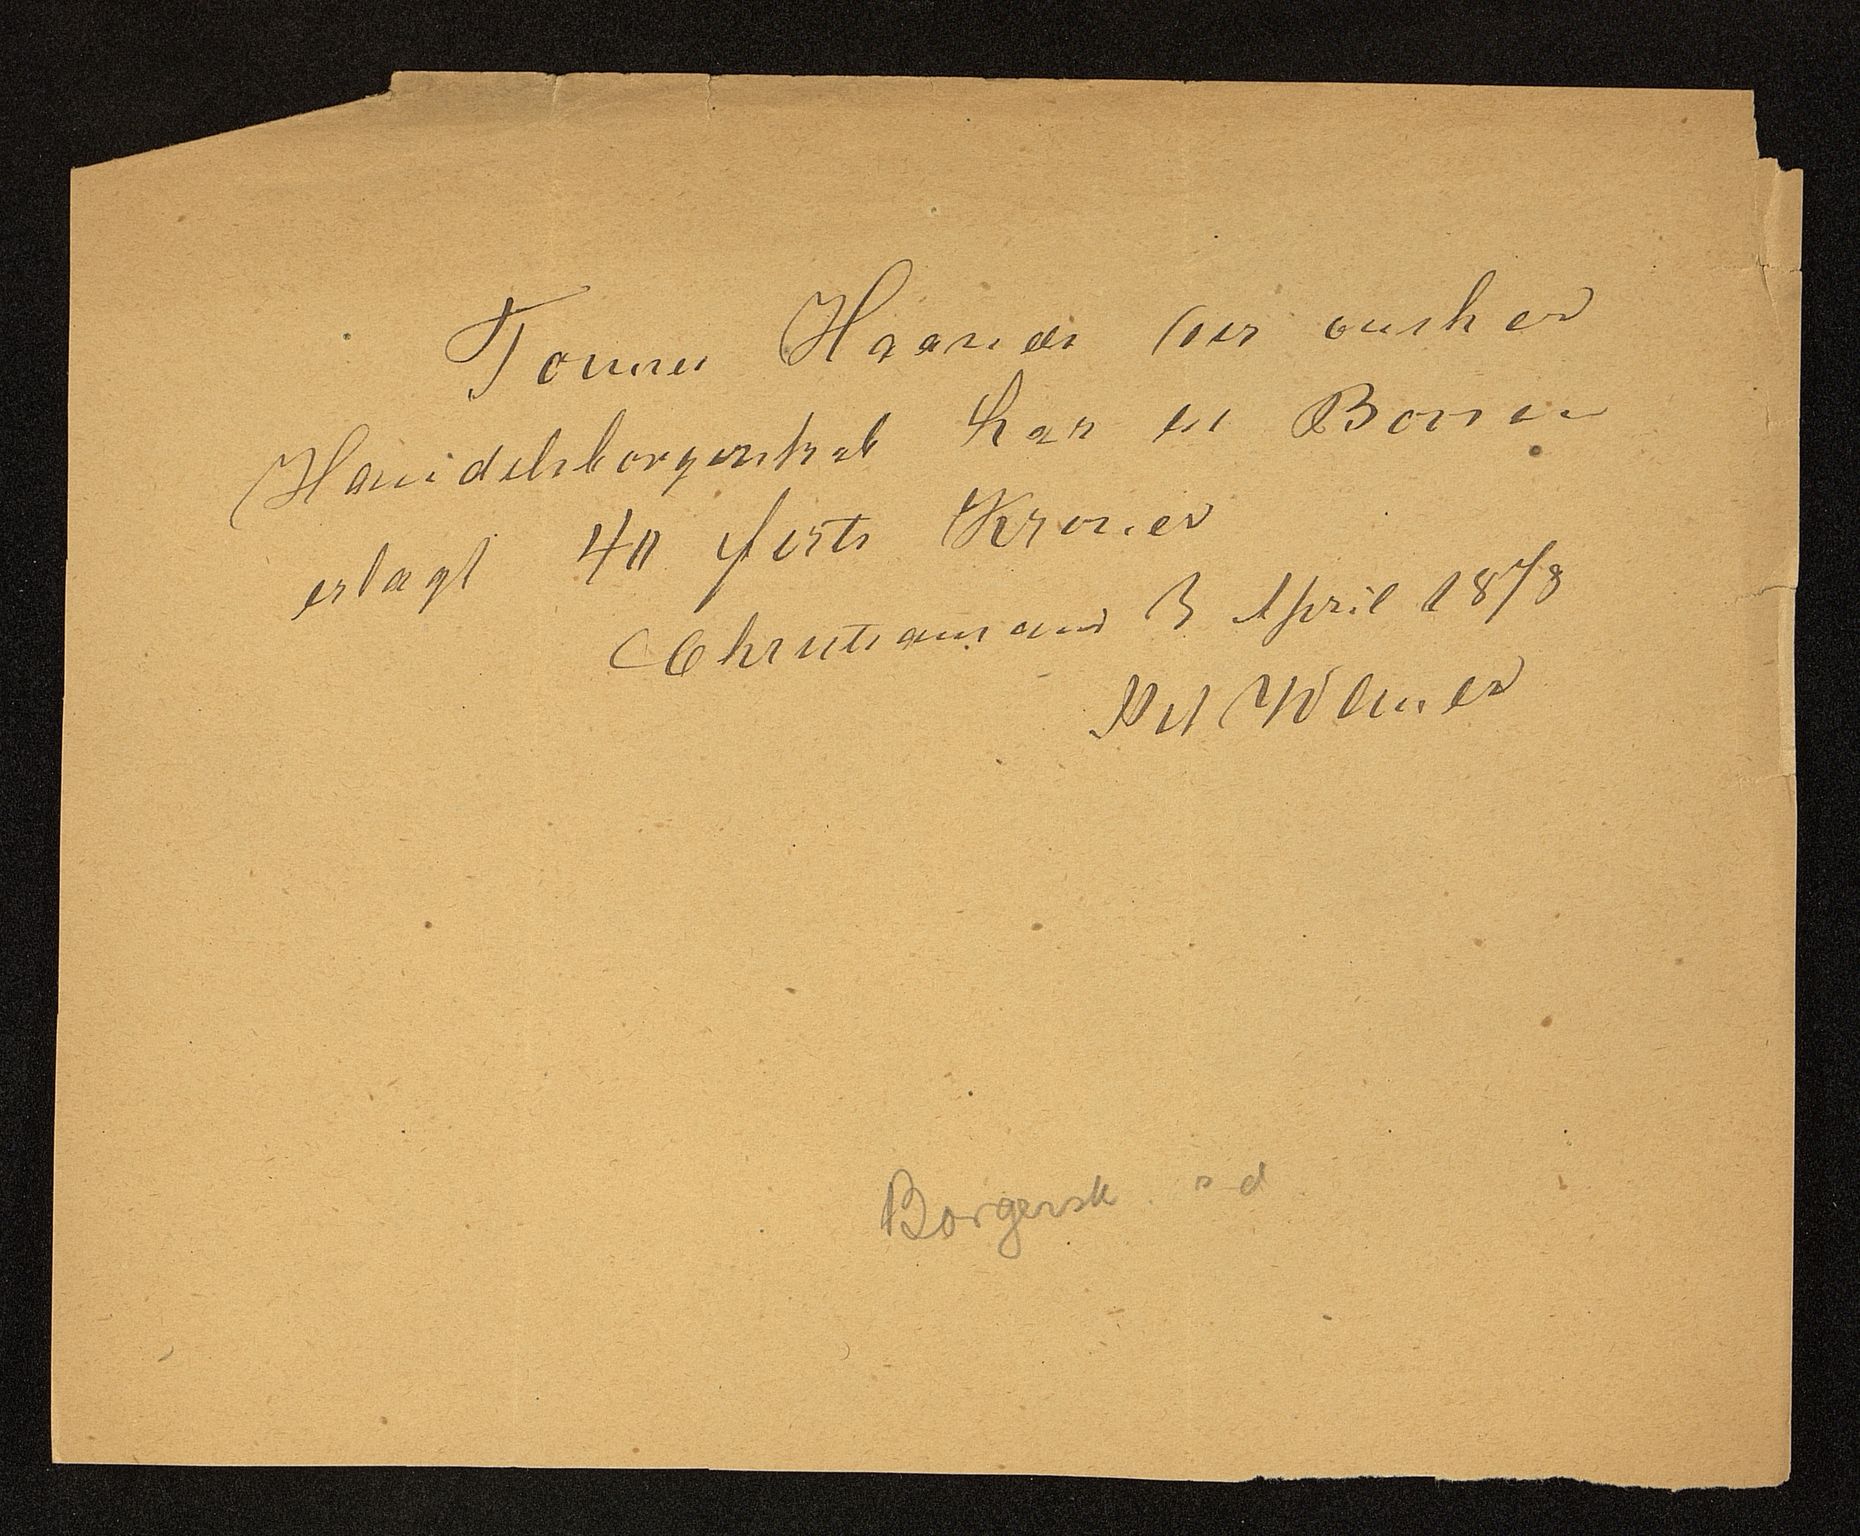 Tønnes Haaner der ønsker
Handelsborgerskab har til Bøssen
erlagt 40 firti Kroner
Christianssand 3 April 1878
Wilmer
Borgersk.